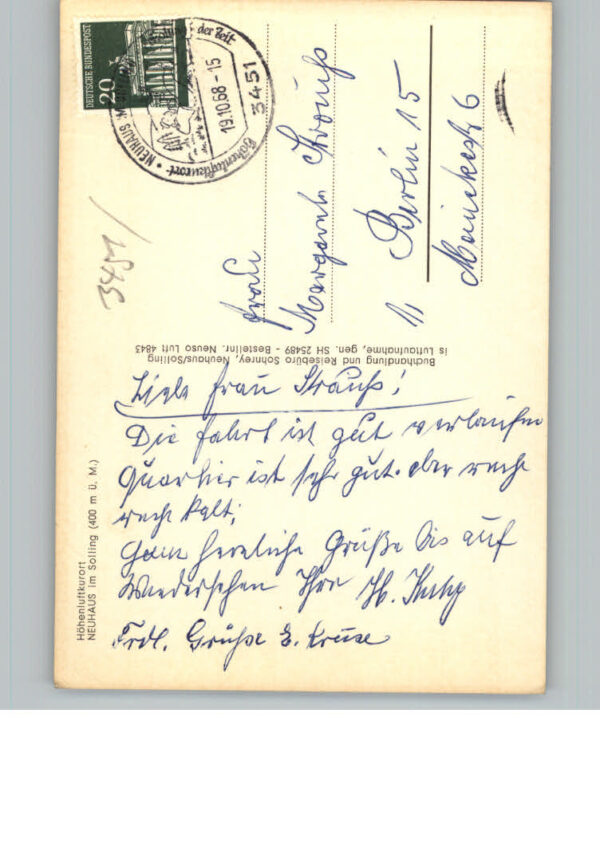 DEUTSCHE BUNDESPOST
20
NEUHAUS
der Zeit
Höhenluftkurort
19.10.68-15
3451
3451/
Frau
Margarete Strauß
1 Berlin 15
Meinekestr 6
Buchhandlung und Reisebüro Sohnrey, Neuhaus/Solling
is Luftaufnahme, gen. SH 25489 - Bestellnr. Neuso Luft 4843
Höhenluftkurort
NEUHAUS im Solling (400 m ü. M.)
Liebe Frau Strauß!
Die Fahrt ist gut verlaufen
Quartier ist sehr gut. aber
kalt;
herzliche Grüße bis auf
Wiedersehen Ihre
Frdl. Grüße E. Kruse